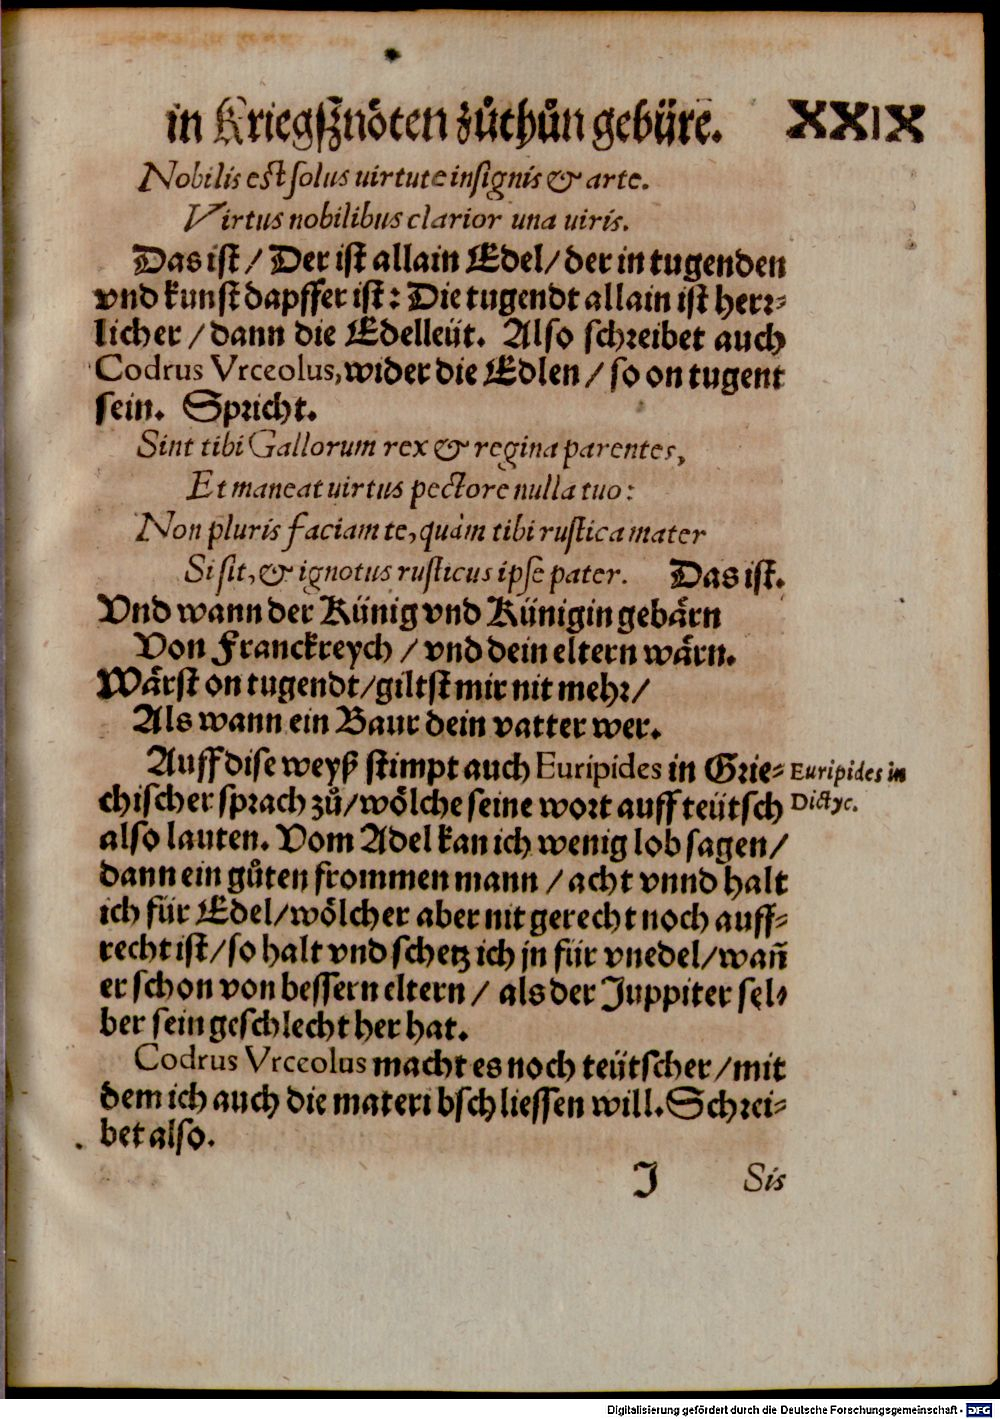 in Kriegßznöten zůthůn gebüre. XXIX
Nobilis est solus uirtute insignis & arte.
Virtus nobilibus clarior una uiris.
Das ist / Der ist allain Edel / der in tugenden
vnd kunst dapffer ist : Die tugendt allain ist herr-
licher / dann die Edelleüt. Also schreibet auch
Codrus Vrceolus, wider die Edlen / so on tugent
sein. Spricht.
Sint tibi Gallorum rex & regina parentes,
Et maneat uirtus pectore nulla tuo:
Non pluris faciam te, quàm tibi rustica mater
Si sit, & ignotus rusticus ipse pater. Das ist.
Vnd wann der Künig vnd Künigin gebårn
Von Franckreych / vnd dein eltern wårn.
Wårst on tugendt / giltst mir nit mehr /
Als wann ein Baur dein vatter wer.
Auff dise weyß stimpt auch Euripides in Grie-
chischer sprach zů / wôlche seine wort auff teütsch
also lauten. Vom Adel kan ich wenig lob sagen /
dann ein gůten frommen mann / acht vnnd halt
ich für Edel / wôlcher aber nit gerecht noch auff-
recht ist / so halt vnd schetz ich jn für vnedel / wañ
er schon von bessern eltern / als der Juppiter sel-
ber sein geschlecht her hat.
Codrus Vrceolus macht es noch teütscher / mit
dem ich auch die materi bschliessen will. Schrei-
bet also.
Euripides in
Dictyc.
J Sis
Digitalisierung gefördert durch die Deutsche Forschungsgemeinschaft - DFG